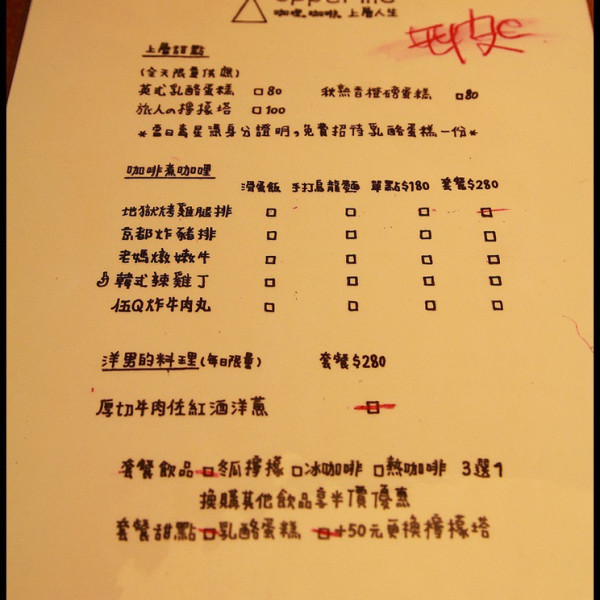 upper life
咖哩.咖啡.上層人生
上層甜點
(全天限量供應)
英式乳酪蛋糕 □80 秋熟香橙磅蛋糕 □80
旅人の檸檬塔 □100
*當日壽星憑身分證明,免費招待乳酪蛋糕一份*
咖啡煮咖哩
滑蛋飯 手打烏龍麵 單點$180 套餐$280
地獄烤雞腿排 □ □ □ □
京都炸豬排 □ □ □ □
老媽燉嫩牛 □ □ □ □
韓式辣雞丁 □ □ □ □
伍Q炸牛肉丸 □ □ □ □
洋男的料理(每日限量) 套餐$280
厚切牛肉佐紅酒洋蔥 □
套餐飲品 □冬瓜檸檬 □冰咖啡 □熱咖啡 3選1
換購其他飲品享半價優惠
套餐甜點 □乳酪蛋糕 □+50元更換檸檬塔